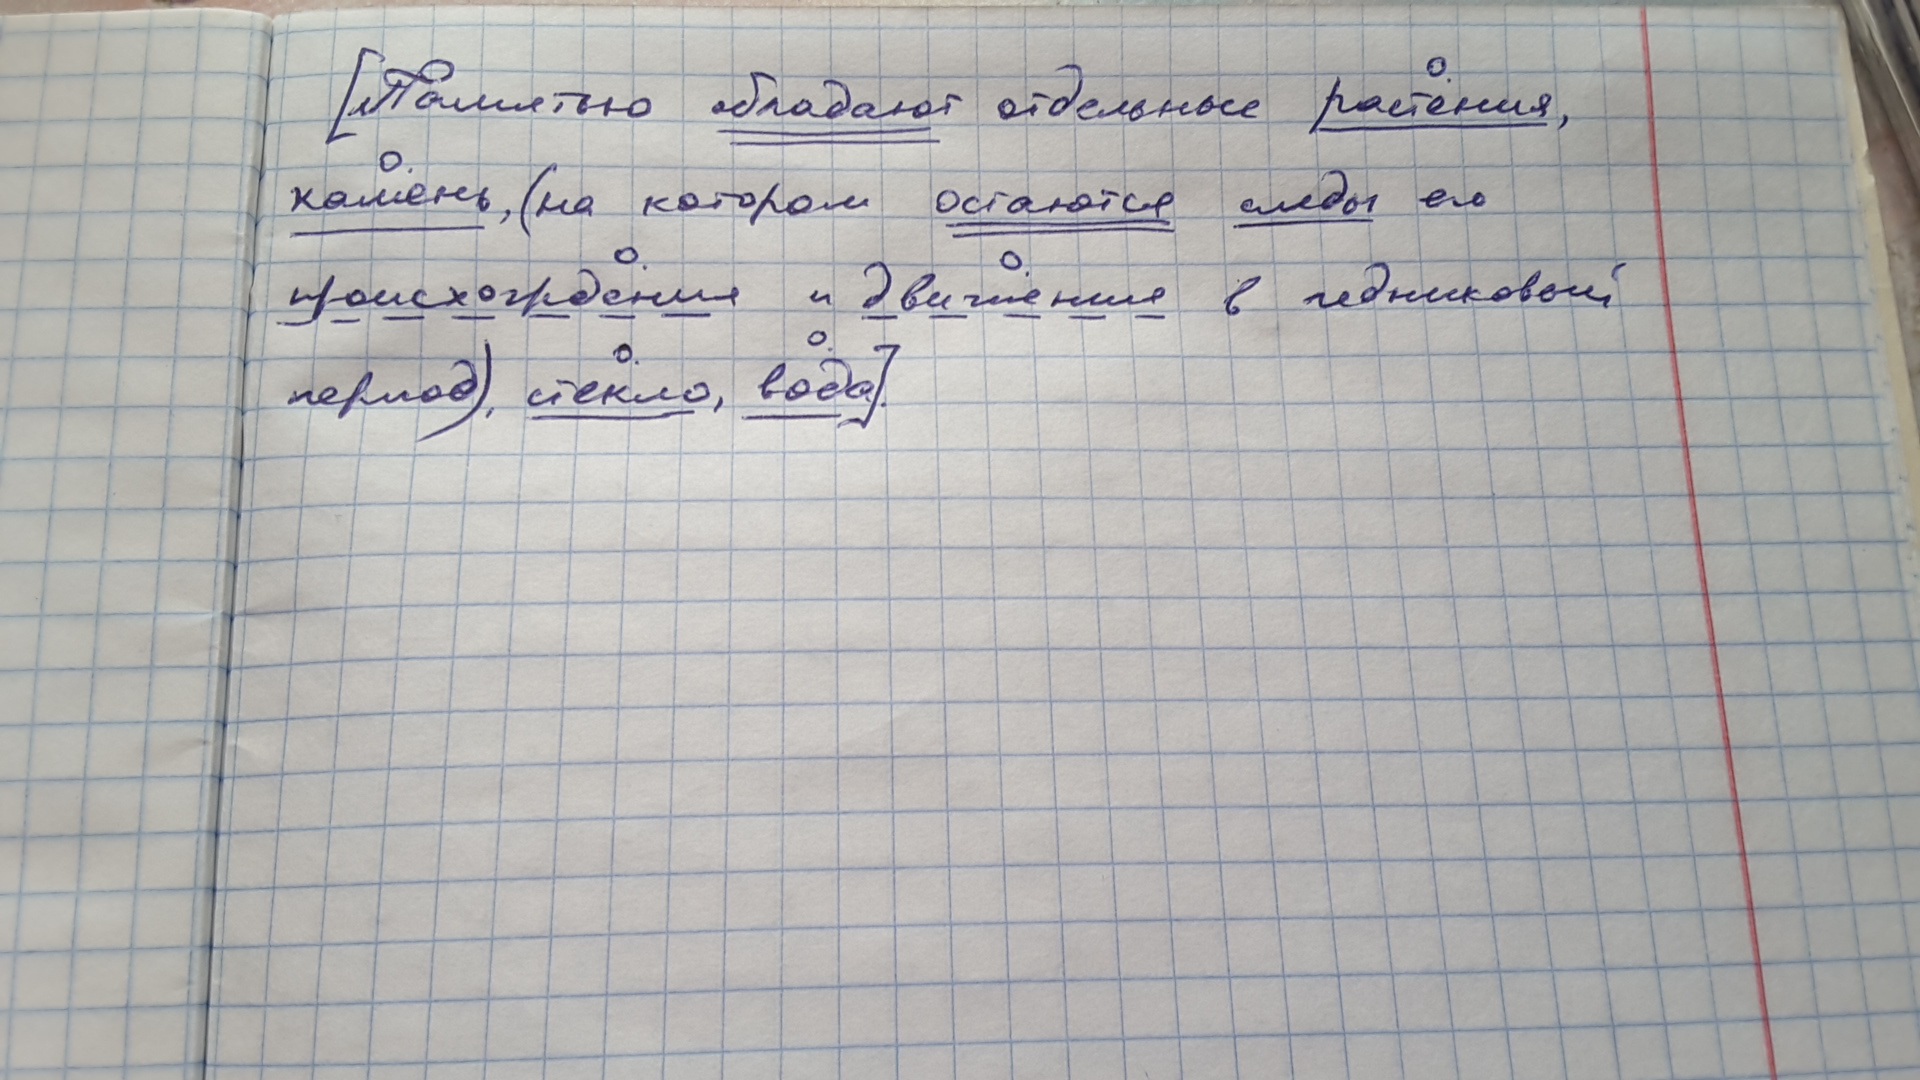 [Памятью обладают отдельные растения,
камень, (на котором остаются следы его
происхождения и движения в ледниковый
период), стекло, вода].